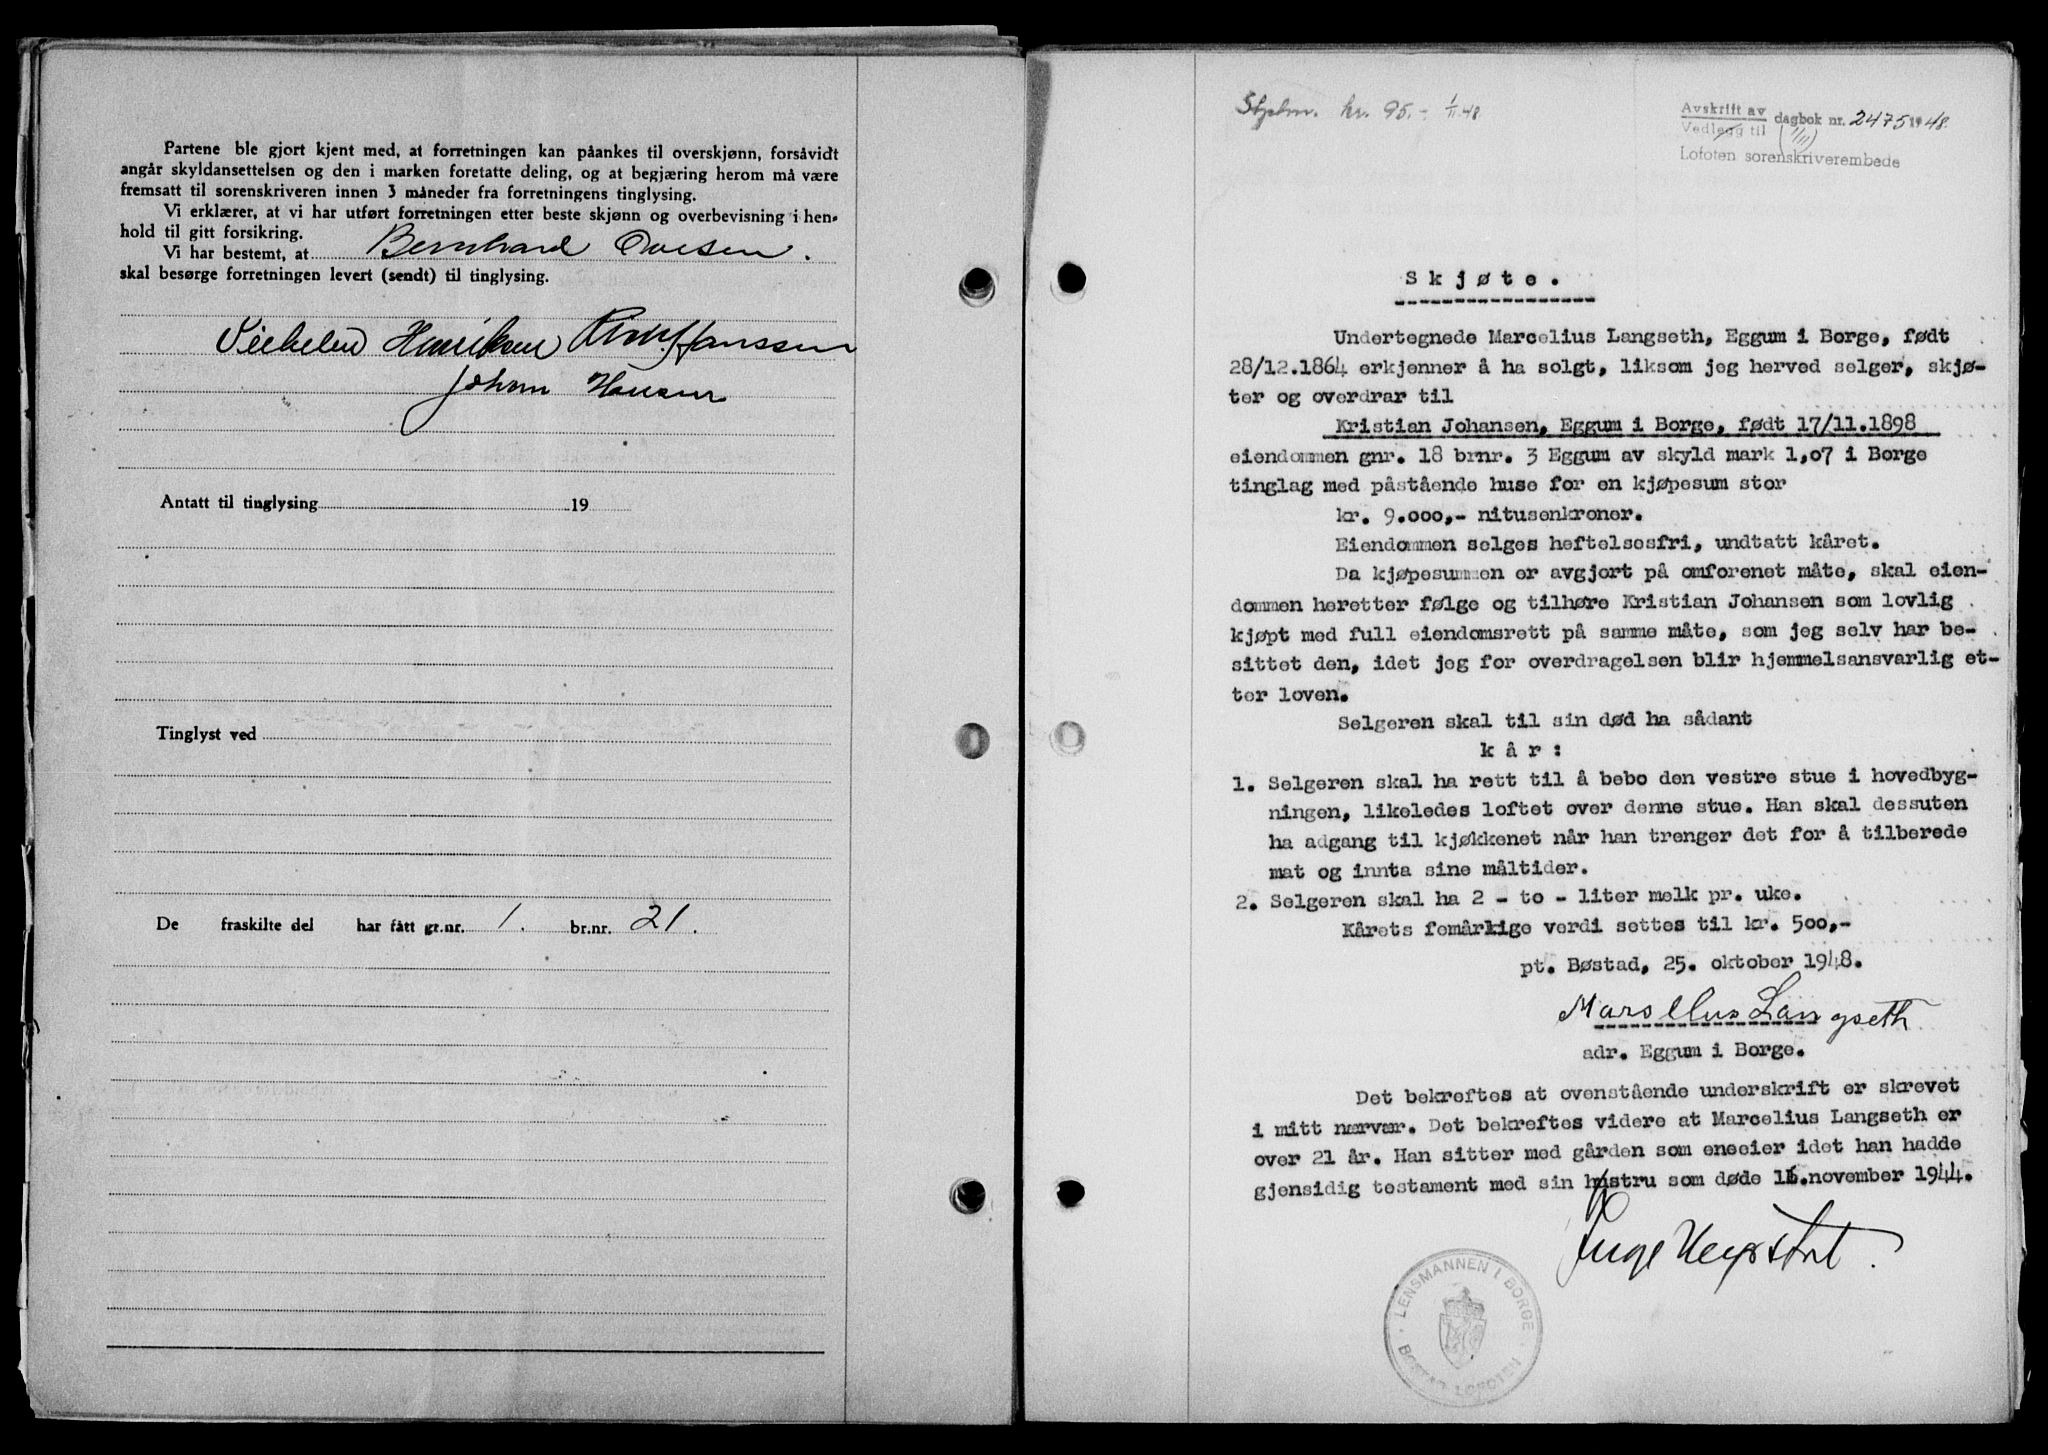 Partene ble gjort kjent med, at forretningen kan påankes til overskjønn, forsåvidt
angår skyldansettelsen og den i marken foretatte deling, og at begjæring herom må være
fremsatt til sorenskriveren innen 3 måneder fra forretningens tinglysing.
Vi erklærer, at vi har utført forretningen etter beste skjønn og overbevisning i hen-
hold til gitt forsikring.
Vi har bestemt, at Bernhard Ovesen.
skal besørge forretningen levert (sendt) til tinglysing.
Henriksen Hanssen
Johan Hansen
Antatt til tinglysing 19
Tinglyst ved
De fraskilte del har fått gr.nr. 1. br.nr. 21.
kr. 95.- 1/11.48
Avskrift av
Vedlegg til dagbok nr. 2475 1948.
(1/11)
Lofoten sorenskriverembede
Skjøte.
Undertegnede Marcelius Langseth, Eggum i Borge, født
28/12.1864 erkjenner å ha solgt, liksom jeg herved selger, skjø-
ter og overdrar til
Kristian Johansen, Eggum i Borge, født 17/11.1898
eiendommen gnr. 18 brnr. 3 Eggum av skyld mark 1,07 i Borge
tinglag med påstående huse for en kjøpesum stor
kr. 9.000,- nitusenkroner.
Eiendommen selges heftelsesfri, undtatt kåret.
Da kjøpesummen er avgjort på omforenet måte, skal eien-
dommen heretter følge og tilhøre Kristian Johansen som lovlig
kjøpt med full eiendomsrett på samme måte, som jeg selv har be-
sittet den, idet jeg for overdragelsen blir hjemmelsansvarlig et-
ter loven.
Selgeren skal til sin død ha sådant
kår:
1. Selgeren skal ha rett til å bebo den vestre stue i hovedbyg-
ningen, likeledes loftet over denne stue. Han skal dessuten
ha adgang til kjøkkenet når han trenger det for å tilberede
mat og innta sine måltider.
2. Selgeren skal ha 2 - to - liter melk pr. uke.
Kårets femårlige verdi settes til kr. 500,-
pt. Bøstad, 25. oktober 1948.
Marsellus Langseth
adr. Eggum i Borge.
Det bekreftes at ovenstående underskrift er skrevet
i mitt nærvær. Det bekreftes videre at Marcelius Langseth er
over 21 år. Han sitter med gården som eneeier idet han hadde
gjensidig testament med sin hustru som døde 16.november 1944.
Inge
LENSMANNEN I BORGE
BØSTAD LOFOTEN